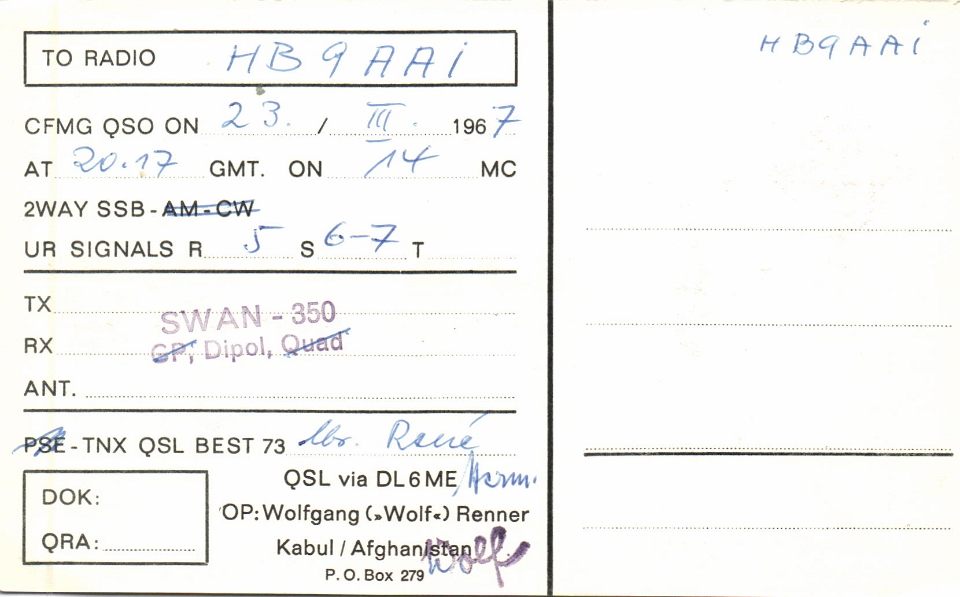 TO RADIO HB9AAi
CFMG QSO ON 23. / III. 1967
AT 20.17 GMT. ON 14 MC
2WAY SSB - AM - CW
UR SIGNALS R 5 S 6-7 T
TX
SWAN - 350
RX
GP, Dipol, Quad
ANT.
PSE - TNX QSL BEST 73 lbr. René
QSL via DL6ME, Herm.
DOK:
OP: Wolfgang (»Wolf«) Renner
QRA:
Kabul / Afghanistan
Wolf
P. O. Box 279
HB9AAi